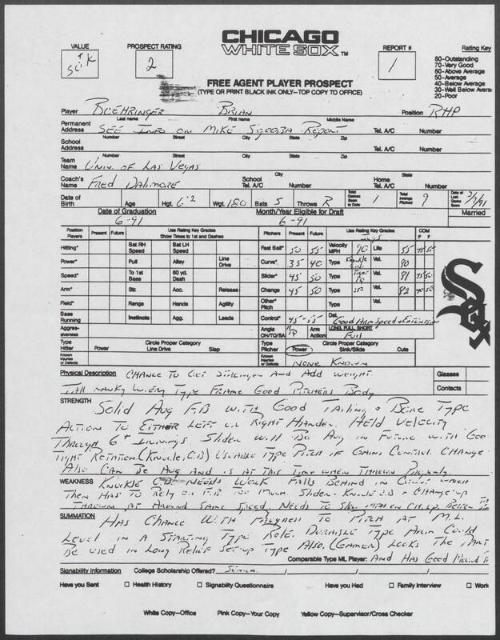 CHICAGO
WHITE SOX TM
VALUE
PROSPECT RATING
2
REPORT #
1
Rating Key
80-Outstanding
70-Very Good
60-Above Average
50-Average
40-Below Average
30-Well Below Average
20-Poor
FREE AGENT PLAYER PROSPECT
(TYPE OR PRINT BLACK INK ONLY-TOP COPY TO OFFICE)
Player Boehringer Brian Position RHP
Last name First name Middle Name
Permanent Address See Info on Mike Report Tel. A/C Number
Number Street City State Zip
School Address Tel. A/C Number
Number Street City State Zip
Team Name Univ. of Las Vegas
Coach's Name Fred Dallimore School Tel. A/C Number Home Tel. A/C Number
Date of Birth Age Hgt. 6-2 Wgt. 180 Bats S Throws R Total Games Seen to Date 1 Total Innings Pitched 9
Date of Graduation Month/Year Eligible for Draft Married
6-91 6-91
Position Players Present Future Use Rating Key Grades Show Times to 1st and Dashes
Pitchers Present Future Use Rating Key Grades
Hitting* Bat RH Speed Bat LH Speed
Fast Ball* 50 55 Velocity MPH 90 Life 55
Power* Pull Alley Line Drive
Curve* 35 40 Type Knuckle Vel. 80
Speed* To 1st Base 60 yd. Dash
Slider* 45 50 Type Vel. 81
Arm* Str. Acc. Release
Change 45 50 Type Vel. 82
Field* Range Hands Agility
Other* Pitch Type Vel.
Base Running Instincts Agg. Leads
Control* 45 55 Del. Good Arm Speed & Extension
Aggressiveness
Arm Action LONG, FULL, SHORT Full
Type Hitter Power Circle Proper Category Line Drive Slap
Type Pitcher Power Circle Proper Category Sink/Slide Cute
Known Injuries or Defects
Known Injuries or Defects None Known
Physical Description Chance to Get Stronger And Add Weight
Tall Type Frame Good Pitchers Body
Glasses
Contacts
STRENGTH Solid Avg FB with Good Tailing & Bore Type
Action to Either Left or Right Hander. Held Velocity
Through 6+ Innings. Slider Will Be Avg in Future with Good
Tight Rotation (Knuckle CB) Useable Type Pitch if Gains Control. Change
Also Can Be Avg and is at This Time when Thrown Properly.
WEAKNESS Knuckle CB Needs Work Falls Behind in Count
Then Has to Rely on FB Too Much. Slider Knuckle CB & Change up
Thrown at Around Same Speed. Needs to
SUMMATION Has Chance With Progress to Pitch at M.L.
Level in a Starting Type Role. Durable Type Arm Could
Be used in Long Relief Set-up Type Also. (Gamer) Looks The Part
Comparable Type ML Player: And Has Good
Signability Information College Scholarship Offered?
Have you Sent Health History Signability Questionnaire Have you Had Family Interview Work
White Copy-Office Pink Copy-Your Copy Yellow Copy-Supervisor/Cross Checker
Sox